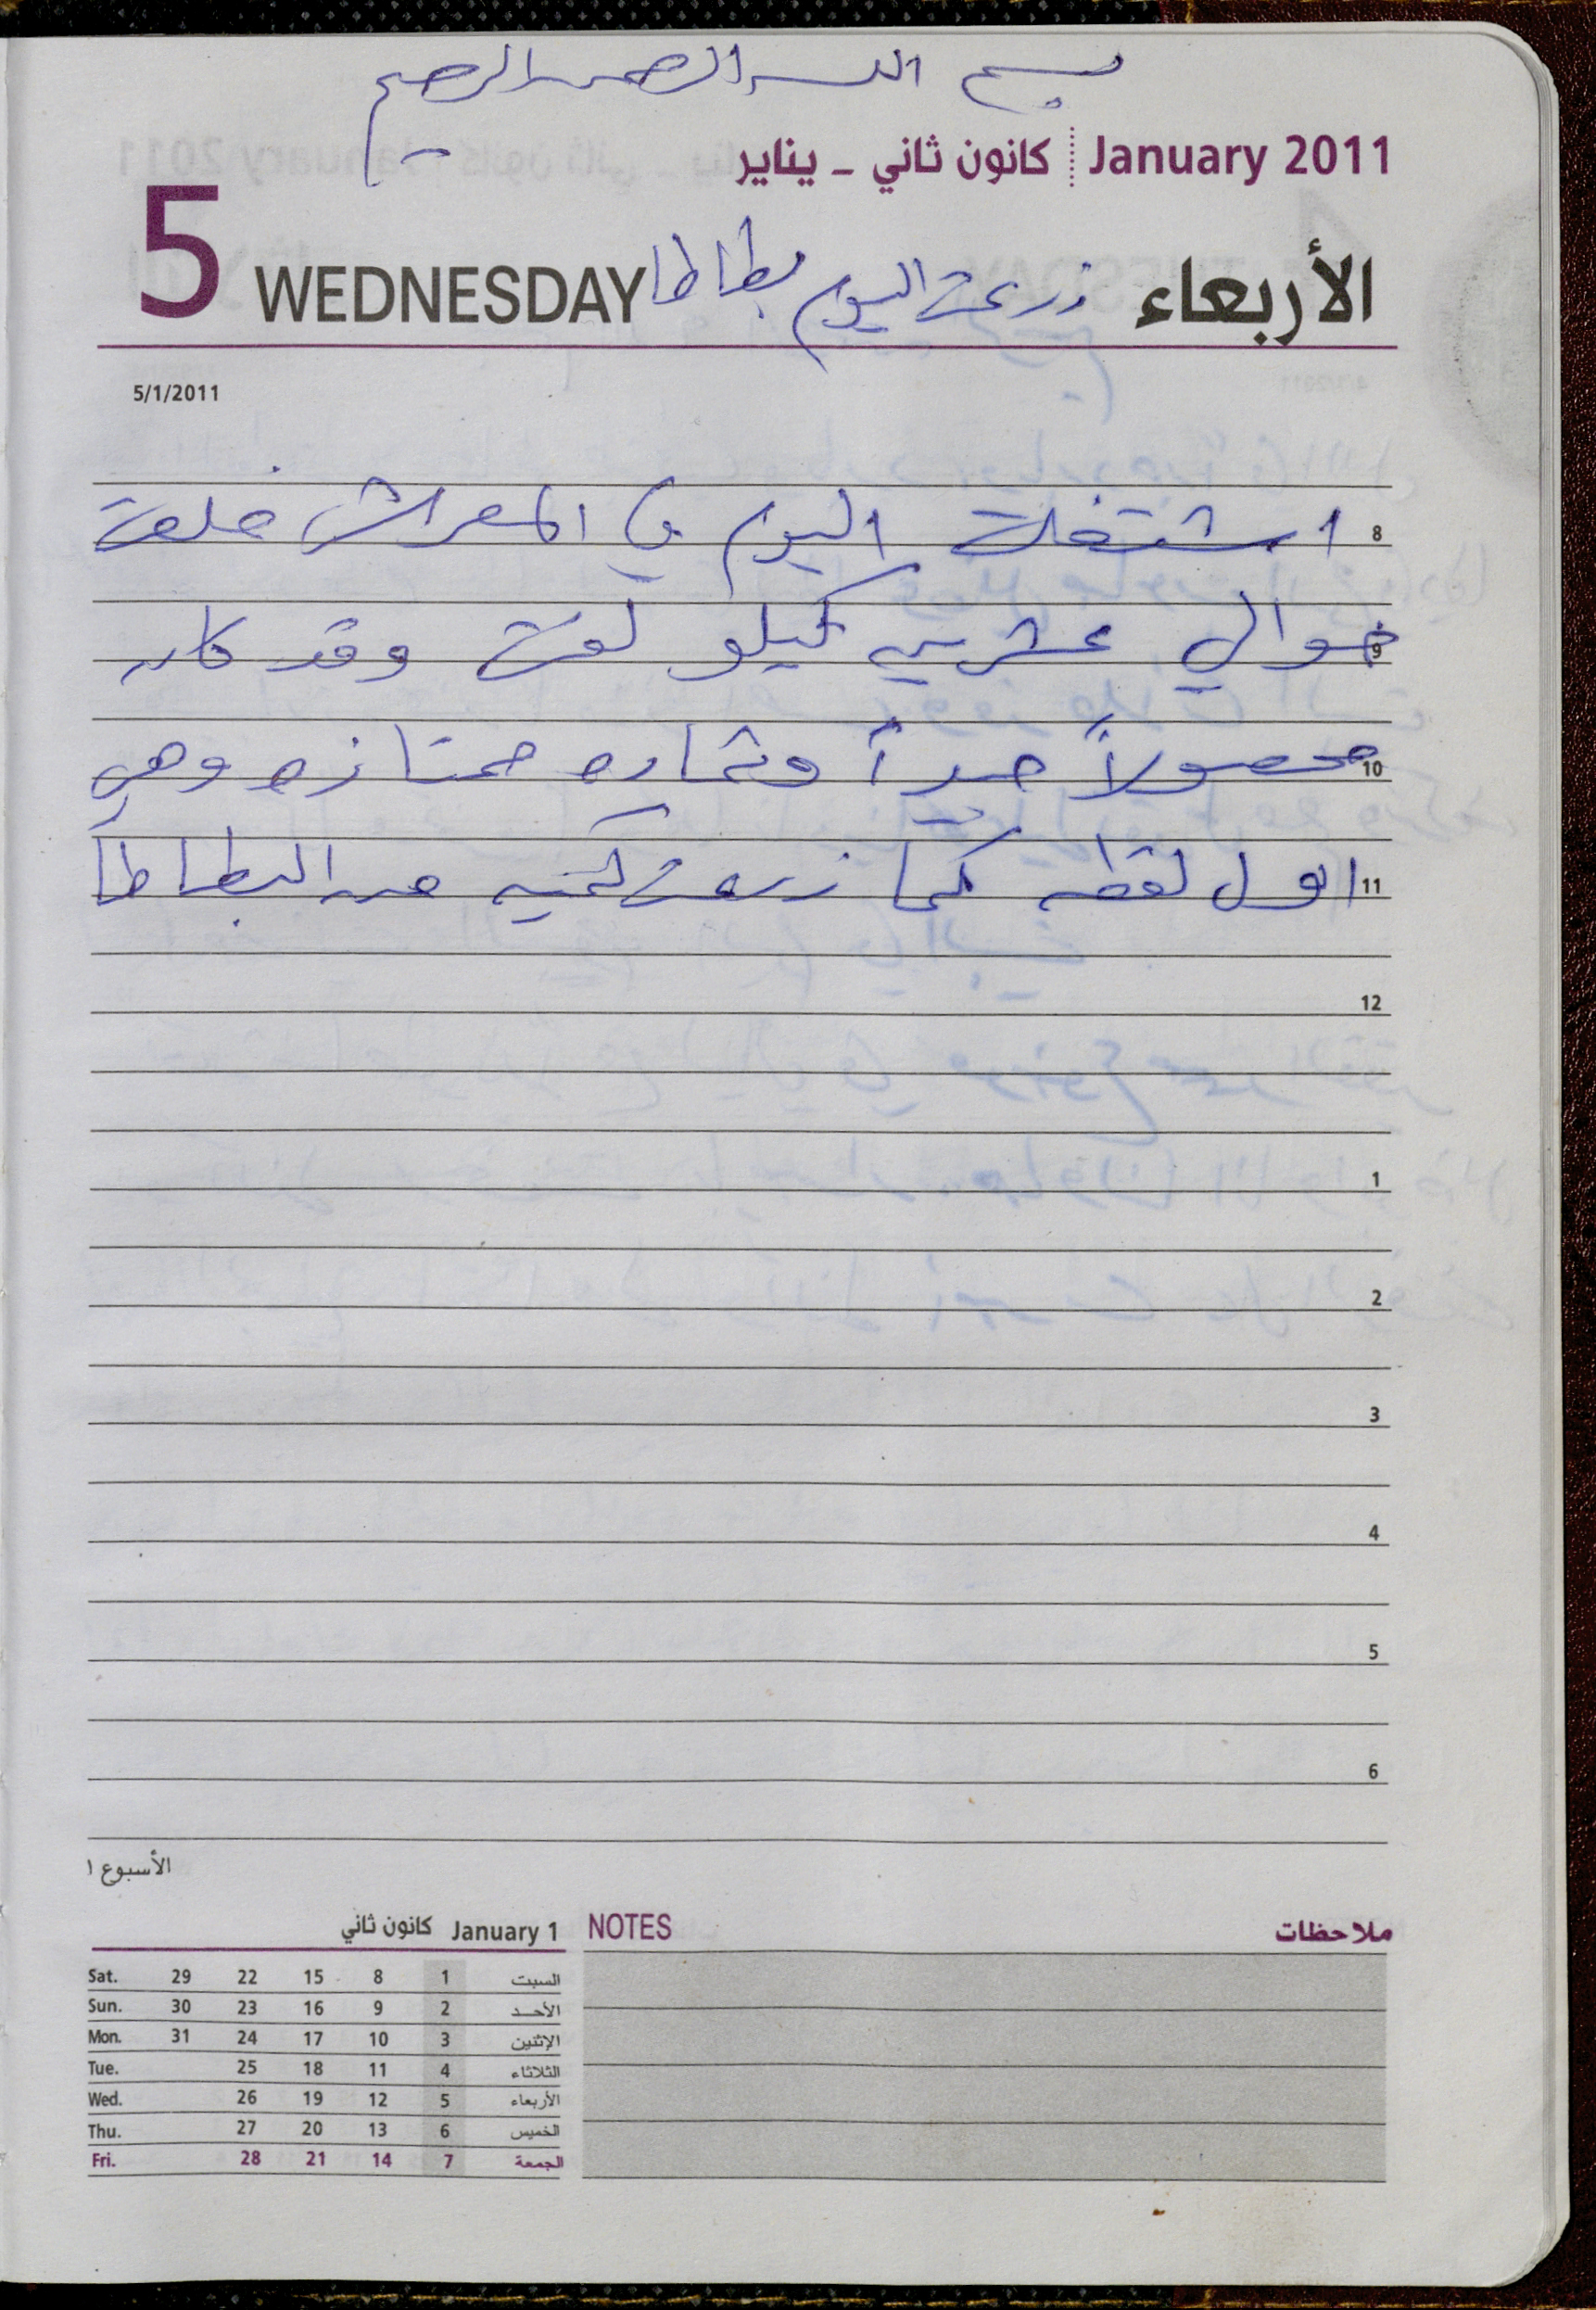 بسم الله الرحمن الرحيم
January 2011 كانون ثاني - يناير
5 WEDNESDAY زرعت اليوم بطاطا الأربعاء
5/1/2011
8 اشتغلت اليوم في المعراش خلعت
9 حوالي عشرين كيلو لفت وقد كان
10 محصولاً جيداً وثماره ممتازه وهي
11 اول لقطه كما زرعت كميه من البطاطا
12
1
2
3
4
5
6
الأسبوع ١
January 1 كانون ثاني
Sat. 29 22 15 8 1 السبت
Sun. 30 23 16 9 2 الأحد
Mon. 31 24 17 10 3 الإثنين
Tue. 25 18 11 4 الثلاثاء
Wed. 26 19 12 5 الأربعاء
Thu. 27 20 13 6 الخميس
Fri. 28 21 14 7 الجمعة
NOTES ملاحظات